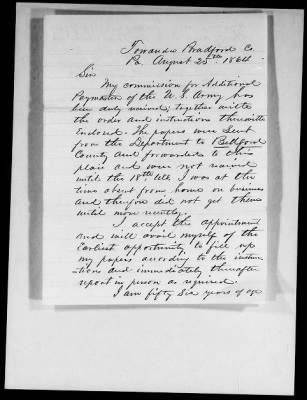 Towanda Bradford Co.
Pa. August 25th 1864
Sir
My commission for Additional
Paymaster of the U. S. Army has
been duly received; together with
the order and instructions therewith
Enclosed. The papers were sent
from the Department to Bedford
County and forwarded to this
place and were not received
until the 18th. I was at the
time absent from home on business
and therefore did not get them
until more recently.
I accept the appointment
and will avail myself of the
Earliest opportunity to fill up
my papers according to the instruc
tions and immediately thereafter
report in person as required.
I am fifty six years of age